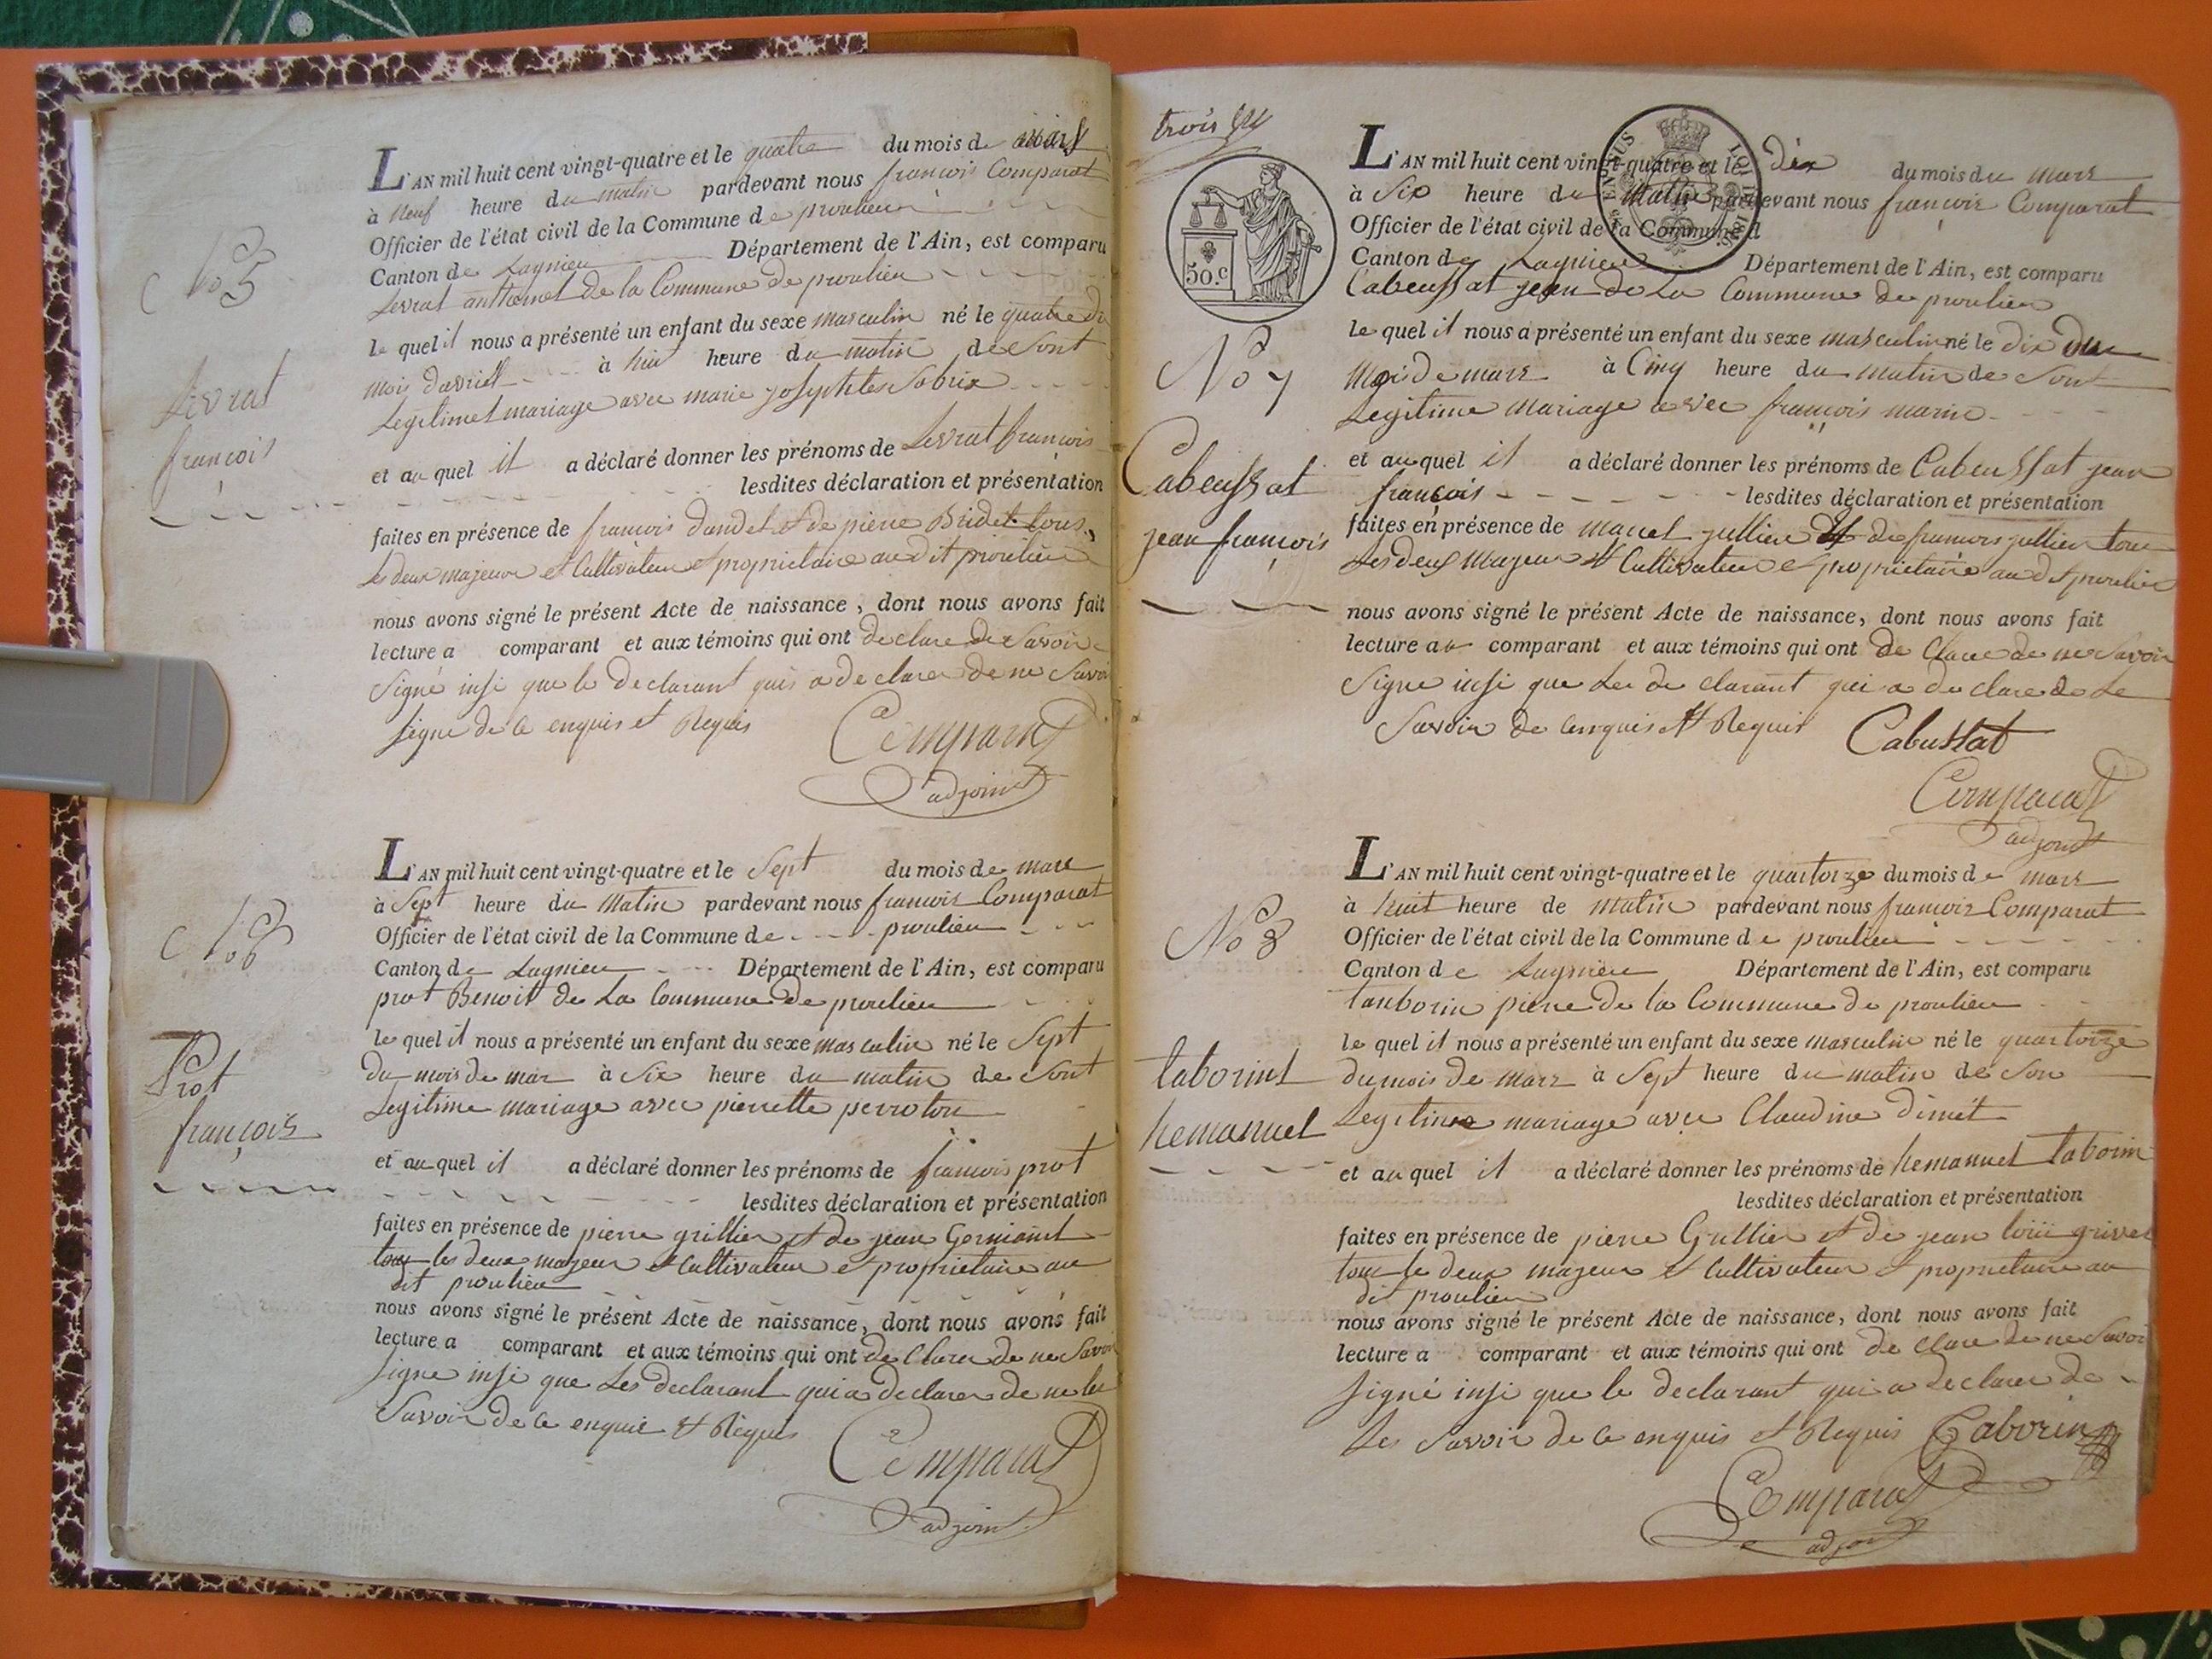 No 5
Levrat
françois
L'AN mil huit cent vingt-quatre et le quatre du mois de
à neuf heure du matin pardevant nous francois Comparat
Officier de l'état civil de la Commune de proulieu
Canton de Lagnieu Département de l'Ain, est comparu
Levrat anthemet de la Commune de proulieu
le quel il nous a présenté un enfant du sexe masculin né le quatre du
mois à huit heure du matin de Sont
Legitimet mariage avec marie
et au quel il a déclaré donner les prénoms de Levrat francois
lesdites déclaration et présentation
faites en présence de francois dandet et de pierre Bridet tous
les deux majeur et Cultivateur et proprietaire au dit proulieu
nous avons signé le présent Acte de naissance, dont nous avons fait
lecture a comparant et aux témoins qui ont declare de Savoir
Signé insi que le declarant quis a declarer de ne Savoir
signe de ce enquis et Requis Comparat
adjoint
No 6
Prot
françois
L'AN mil huit cent vingt-quatre et le Sept du mois de mars
à Sept heure du Matin pardevant nous francois Comparat
Officier de l'état civil de la Commune de proulieu
Canton de Lagnieu Département de l'Ain, est comparu
prot Benoit de La Commune de proulieu
le quel il nous a présenté un enfant du sexe masculin né le Sept
du mois de mar à Six heure du matin de Sont
Legitime mariage avec pierrette perroton
et au quel il a déclaré donner les prénoms de francois prot
lesdites déclaration et présentation
faites en présence de pierre grillier et de jean
tous les deux majeur et Cultivateur et proprietaire au
dit proulieu
nous avons signé le présent Acte de naissance, dont nous avons fait
lecture a comparant et aux témoins qui ont de Clarer de ne Savoir
signe insi que Les declarant qui a declarer de ne les
Savoir de ce enquis et Requis
Comparat
adjoint
trois
50. c
L'AN mil huit cent vingt-quatre et le dix du mois du mars
à Six heure du Matin pardevant nous françois Comparat
Officier de l'état civil de la Commune d
Canton de Lagnieu Département de l'Ain, est comparu
Cabeussat jean de La Commune de proulieu
le quel il nous a présenté un enfant du sexe masculin né le dix du
No 7
Mois de mars à Cinq heure du matin de Sont
Legitime Mariage avec françois marie
et au quel il a déclaré donner les prénoms de Cabeussat jean
Cabeussat
jean françois
françois lesdites déclaration et présentation
faites en présence de marcel jullien et de francois jullien tous
Les deux Majeur et Cultivateur e proprietaire au dit proulieu
nous avons signé le présent Acte de naissance, dont nous avons fait
lecture au comparant et aux témoins qui ont de Clare de ne Savoir
Signe insi que Les de clarant qui a de clare de Le
Savoir de enquis et Requis Cabussat
Comparat
adjoint
L'AN mil huit cent vingt-quatre et le quartorze du mois de mars
à huit heure de matin pardevant nous francois Comparat
No 8
Officier de l'état civil de la Commune de proulieu
Canton de Lagnieu Département de l'Ain, est comparu
tanborin pierre de la Commune de proulieu
le quel il nous a présenté un enfant du sexe masculin né le quartorze
taborint
hemanuel
du mois de mars à Sept heure du matin de Son
Legitime mariage avec Claudine dimét
et au quel il a déclaré donner les prénoms de hemanuel taborin
lesdites déclaration et présentation
faites en présence de pierre Grillier et de jean loüi
tous le deux majeur et Cultivateur et proprietaire au
dit proulieu
nous avons signé le présent Acte de naissance, dont nous avons fait
lecture a comparant et aux témoins qui ont de Clare de ne Savoir
signé insi que le declarant qui a declarer de
Les Savoir de ce enquis et Requis Taborin
Comparat
adjoint